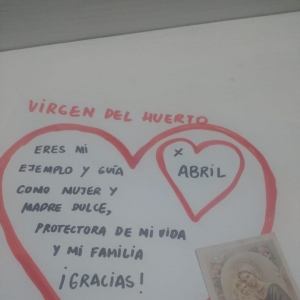 VIRGEN DEL HUERTO
ERES MI
EJEMPLO Y GUÍA
COMO MUJER Y
MADRE DULCE,
PROTECTORA DE MI VIDA
Y MI FAMILIA
¡GRACIAS!
X
ABRIL